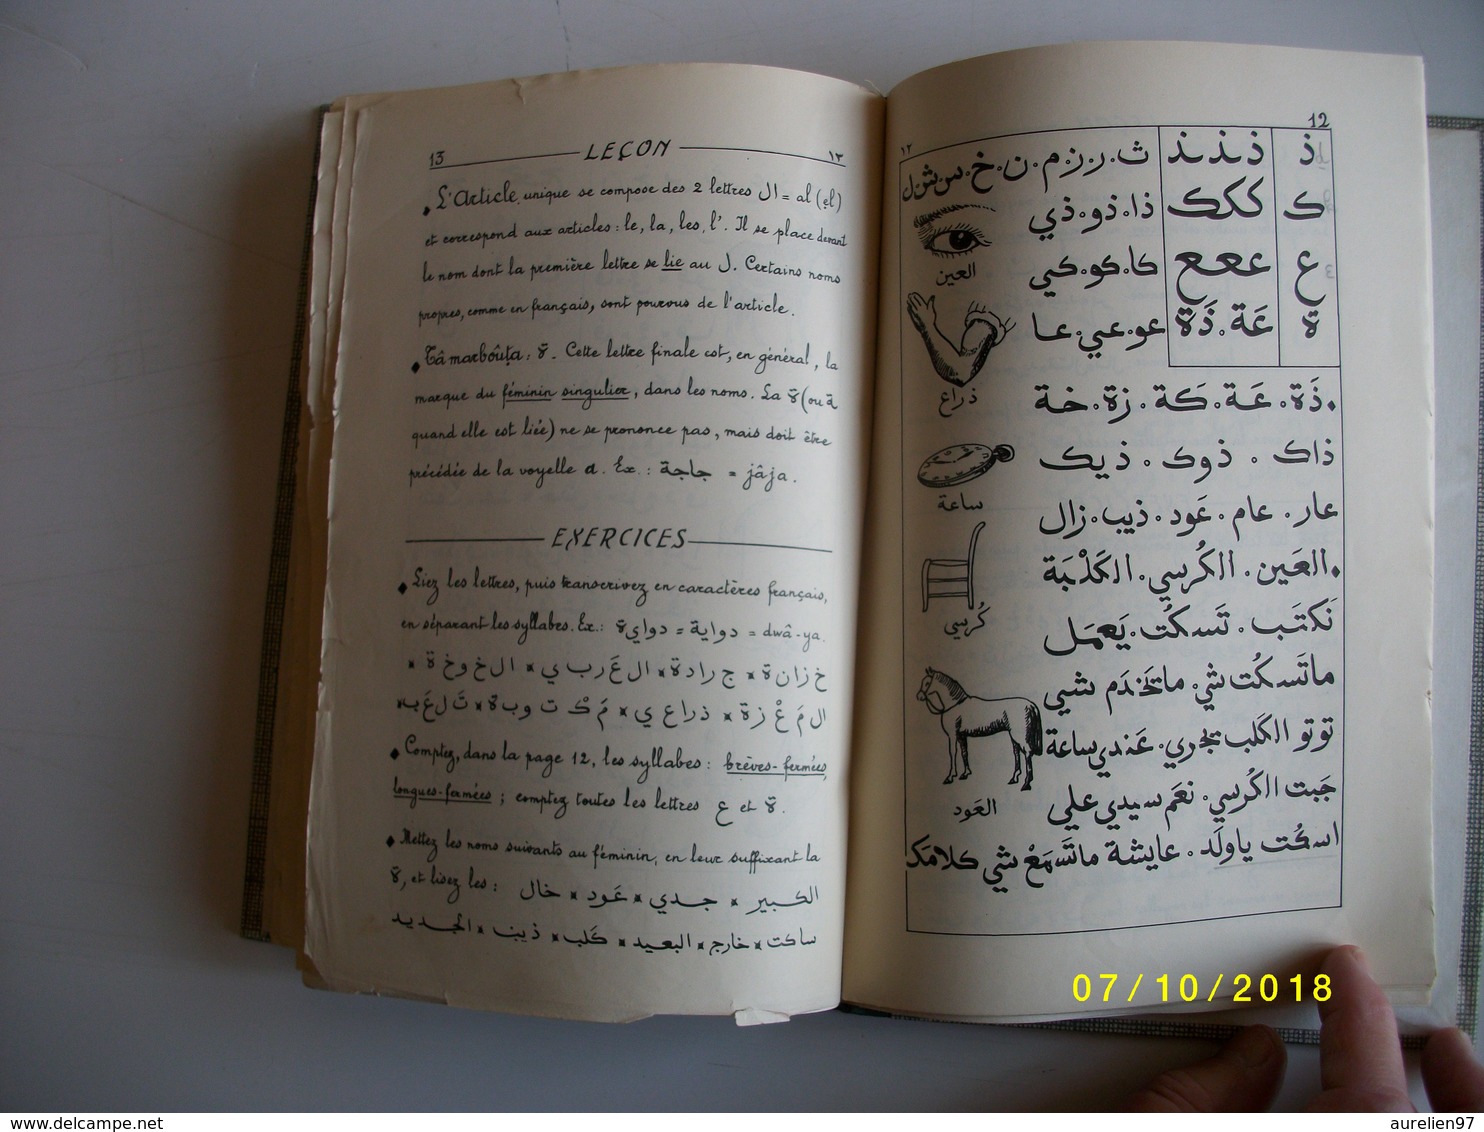 13 LEÇON ١٣
L'Article, unique se compose des 2 lettres ال = al (el)
et correspond aux articles : le, la, les, l'. Il se place devant
le nom dont la première lettre se lie au J. Certains noms
propres, comme en français, sont pourvus de l'article.
Tâ marboûṭa : ة. Cette lettre finale est, en général, la
marque du féminin singulier, dans les noms. La ة (ou ـة
quand elle est liée) ne se prononce pas, mais doit être
précédée de la voyelle a. Ex. : جاجة = jâja.
EXERCICES
Liez les lettres, puis transcrivez en caractères français,
en séparant les syllabes. Ex. : دواي ة = دواية = dwâ-ya.
خ زان ة × ج رادة × ال عَ رب ي × ال خ وخ ة ×
ال مَ عْ زة × ذراع ي × مَ كْ ت وب ة × تَ ل عَ ب ×
Comptez, dans la page 12, les syllabes : brèves-fermées,
longues-fermées ; comptez toutes les lettres ع et ة.
Mettez les noms suivants au féminin, en leur suffixant la
ة, et lisez les : الكبير × جدي × عَود × خال
ساكت × خارج × البعيد × كَلب × ذيب × الجديد
12
١٢
ذ
ذ ذ ذ
ث . ر . ز . م . ن . خ . س . ش . ل
ك
ككك
ذا . ذو . ذي
ع
ععع
كا . كو . كي
ة
عَة . ذَة
عو . عي . عا
ذَة . عَة . كَة . زة . خة
ذاك . ذوك . ذيك
عار . عام . عَود . ذيب . زال
العَين . الكُرسي . الكَذْبَة
نَكتَب . تَسكُت . يَعمَل
ماتَسكُت شي . ماتَخدَم شي
توتو الكَلب يجري . عَندي ساعة
جَبت الكُرسي . نعَم سيدي علي
اسكُت ياولَد . عايشة ماتَسمَعْ شي كلامك
العين
ذراع
ساعة
كُرسي
العَود
07/10/2018
aurelien97